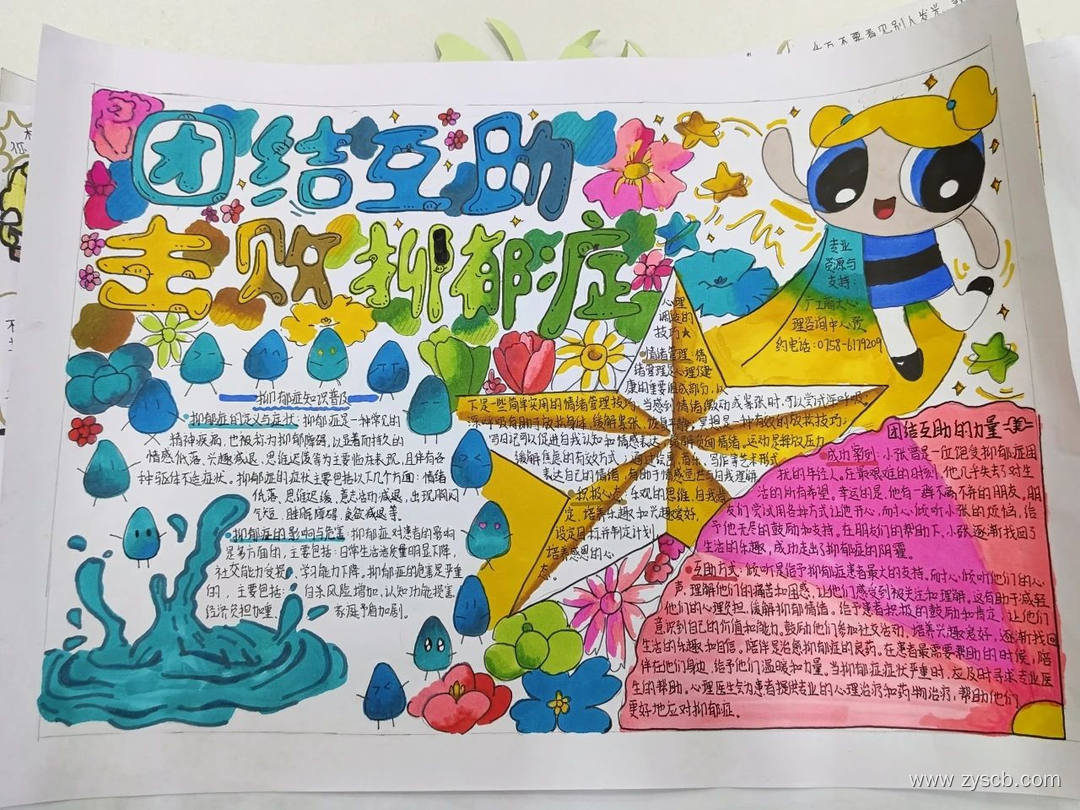 团结互助
击败抑郁症
抑郁症知识普及
抑郁症的定义与症状:抑郁症是一种常见的
精神疾病,也被称为抑郁障碍,以显著而持久的
情感低落、兴趣减退、思维迟缓等为主要临床表现,且伴有各
种躯体不适症状。抑郁症的症状主要包括以下几个方面:情绪
低落、思维迟缓、意志活动减退、出现胸闷
气短、睡眠障碍、食欲减退等。
抑郁症的影响与危害:抑郁症对患者的影响
是多方面的,主要包括:日常生活质量明显下降,
社交能力受损,学习能力下降。抑郁症的危害是严重
的,主要包括:自杀风险增加,认知功能损害,
经济负担加重,家庭矛盾加剧。
心理
调适的
技巧★
情绪管理:情
绪管理是心理健
康的重要组成部分,以
下是一些简单实用的情绪管理技巧。当感到情绪激动或紧张时,可以尝试深呼吸,
深呼吸有助于放松身体,缓解紧张、恢复平静。冥想是一种有效的放松技巧,
写日记可以促进自我认知和情感表达,缓解负面情绪。运动是释放压力
缓解焦虑的有效方式,通过绘画、音乐、写作等艺术形式
表达自己的情绪,有助于情感宣泄与自我理解。
积极心态:乐观的思维、自我肯
定、培养乐趣和兴趣爱好,
设定目标并制定计划
培养感恩的心
态。
专业
资源与
支持:
理咨询中心预
约电话:0758-6179209
团结互助的力量
成功案例:小张曾是一位饱受抑郁症困
扰的年轻人。在最艰难的时刻,他几乎失去了对生
活的所有希望。幸运的是,他有一群不离不弃的朋友。朋
友们尝试用各种方式让他开心,耐心倾听小张的烦恼,给
予他无尽的鼓励和支持。在朋友们的帮助下,小张逐渐找回了
生活的乐趣,成功走出了抑郁症的阴霾。
互助方式:倾听是给予抑郁症患者最大的支持。耐心倾听他们的心
声,理解他们的痛苦和困惑,让他们感受到被关注和理解,这有助于减轻
他们的心理负担,缓解抑郁情绪。给予患者积极的鼓励和肯定,让他们
意识到自己的价值和能力。鼓励他们参加社交活动,培养兴趣爱好,逐渐找回
生活的乐趣和自信。陪伴是治愈抑郁症的良药。在患者最需要帮助的时候,陪
伴在他们身边,给予他们温暖和力量。当抑郁症症状严重时,应及时寻求专业医
生的帮助。心理医生会为患者提供专业的心理治疗和药物治疗,帮助他们
更好地应对抑郁症。
www.zyscb.com